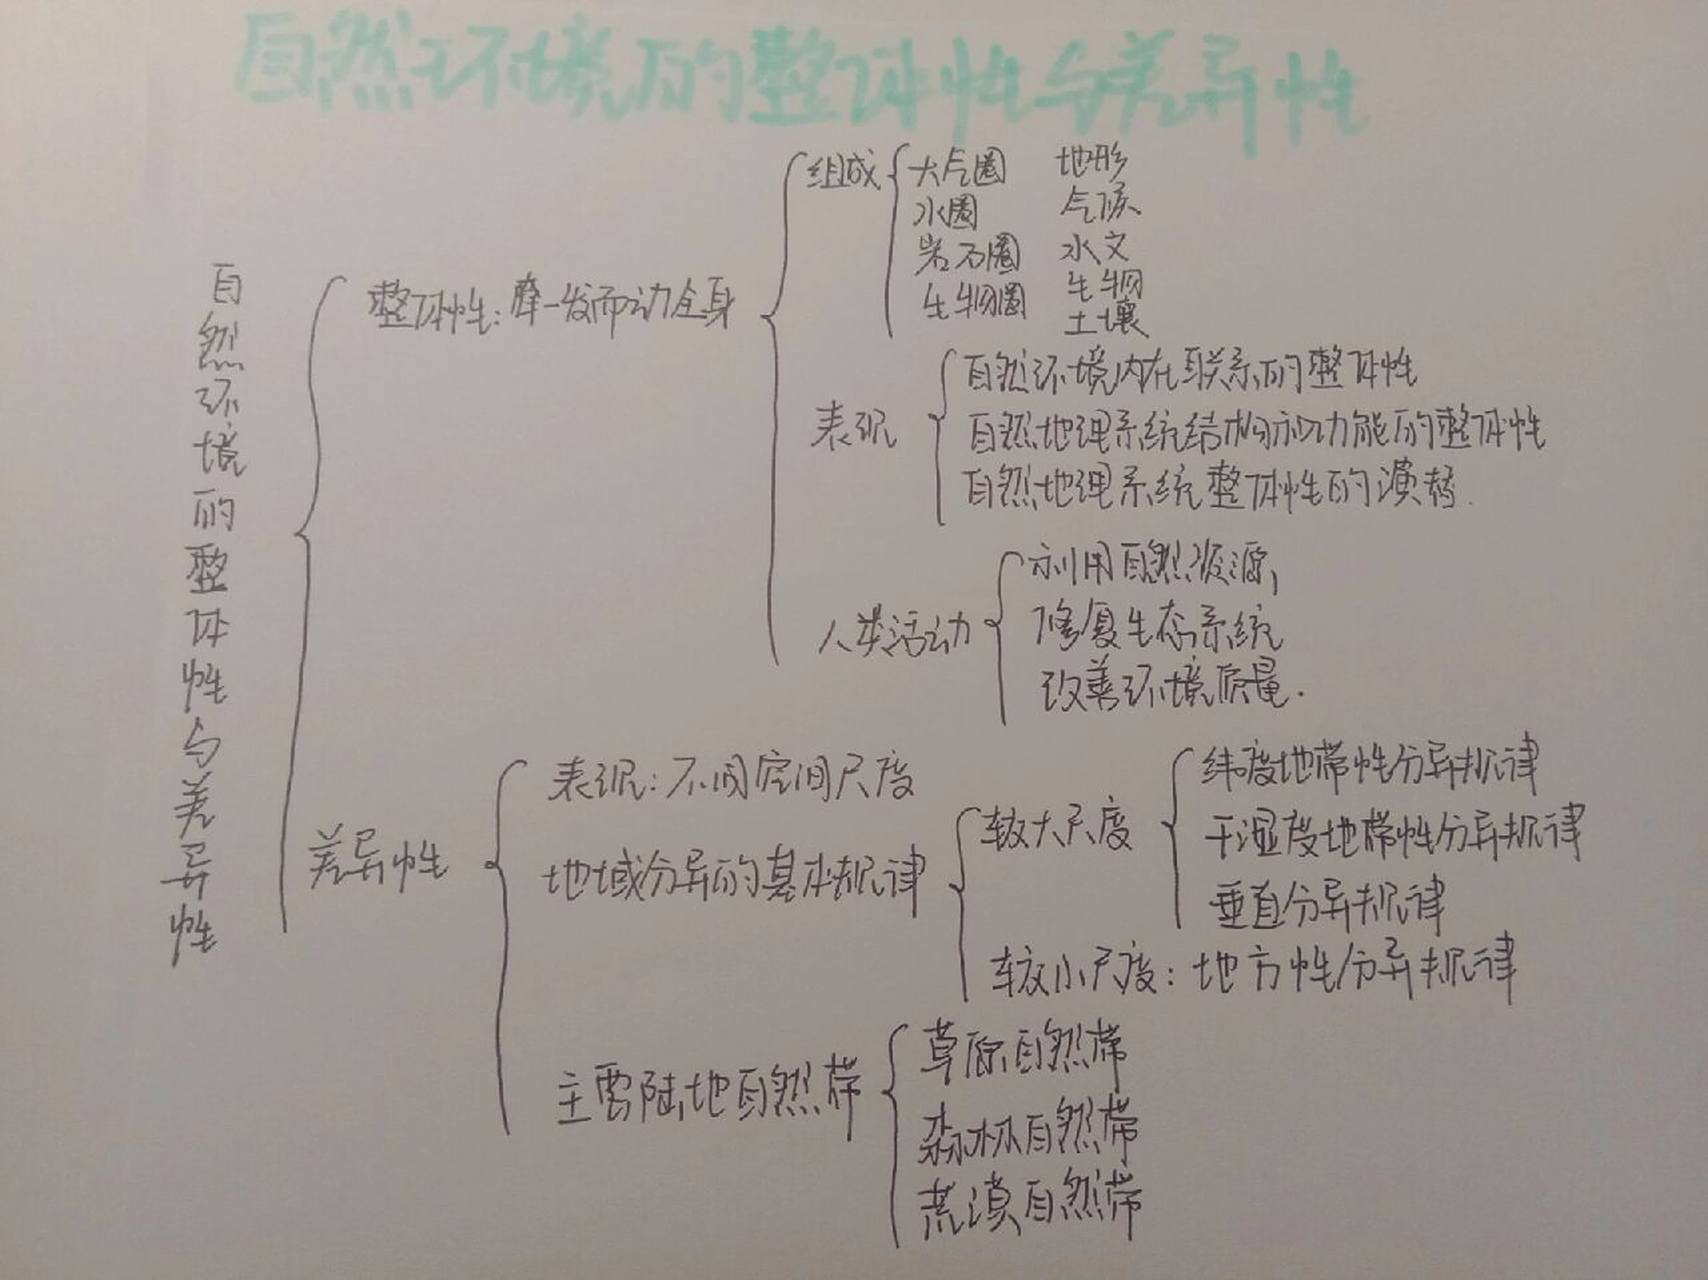 自然环境的整体性与差异性
自然环境的整体性与差异性
整体性：牵一发而动全身
组成
大气圈 地形
水圈 气候
岩石圈 水文
生物圈 生物
土壤
表现
自然环境内在联系的整体性
自然地理系统结构和功能的整体性
自然地理系统整体性的演替.
人类活动
利用自然资源,
修复生态系统
改善环境质量.
差异性
表现：不同空间尺度
地域分异的基本规律
较大尺度
纬度地带性分异规律
干湿度地带性分异规律
垂直分异规律
较小尺度：地方性分异规律
主要陆地自然带
草原自然带
森林自然带
荒漠自然带